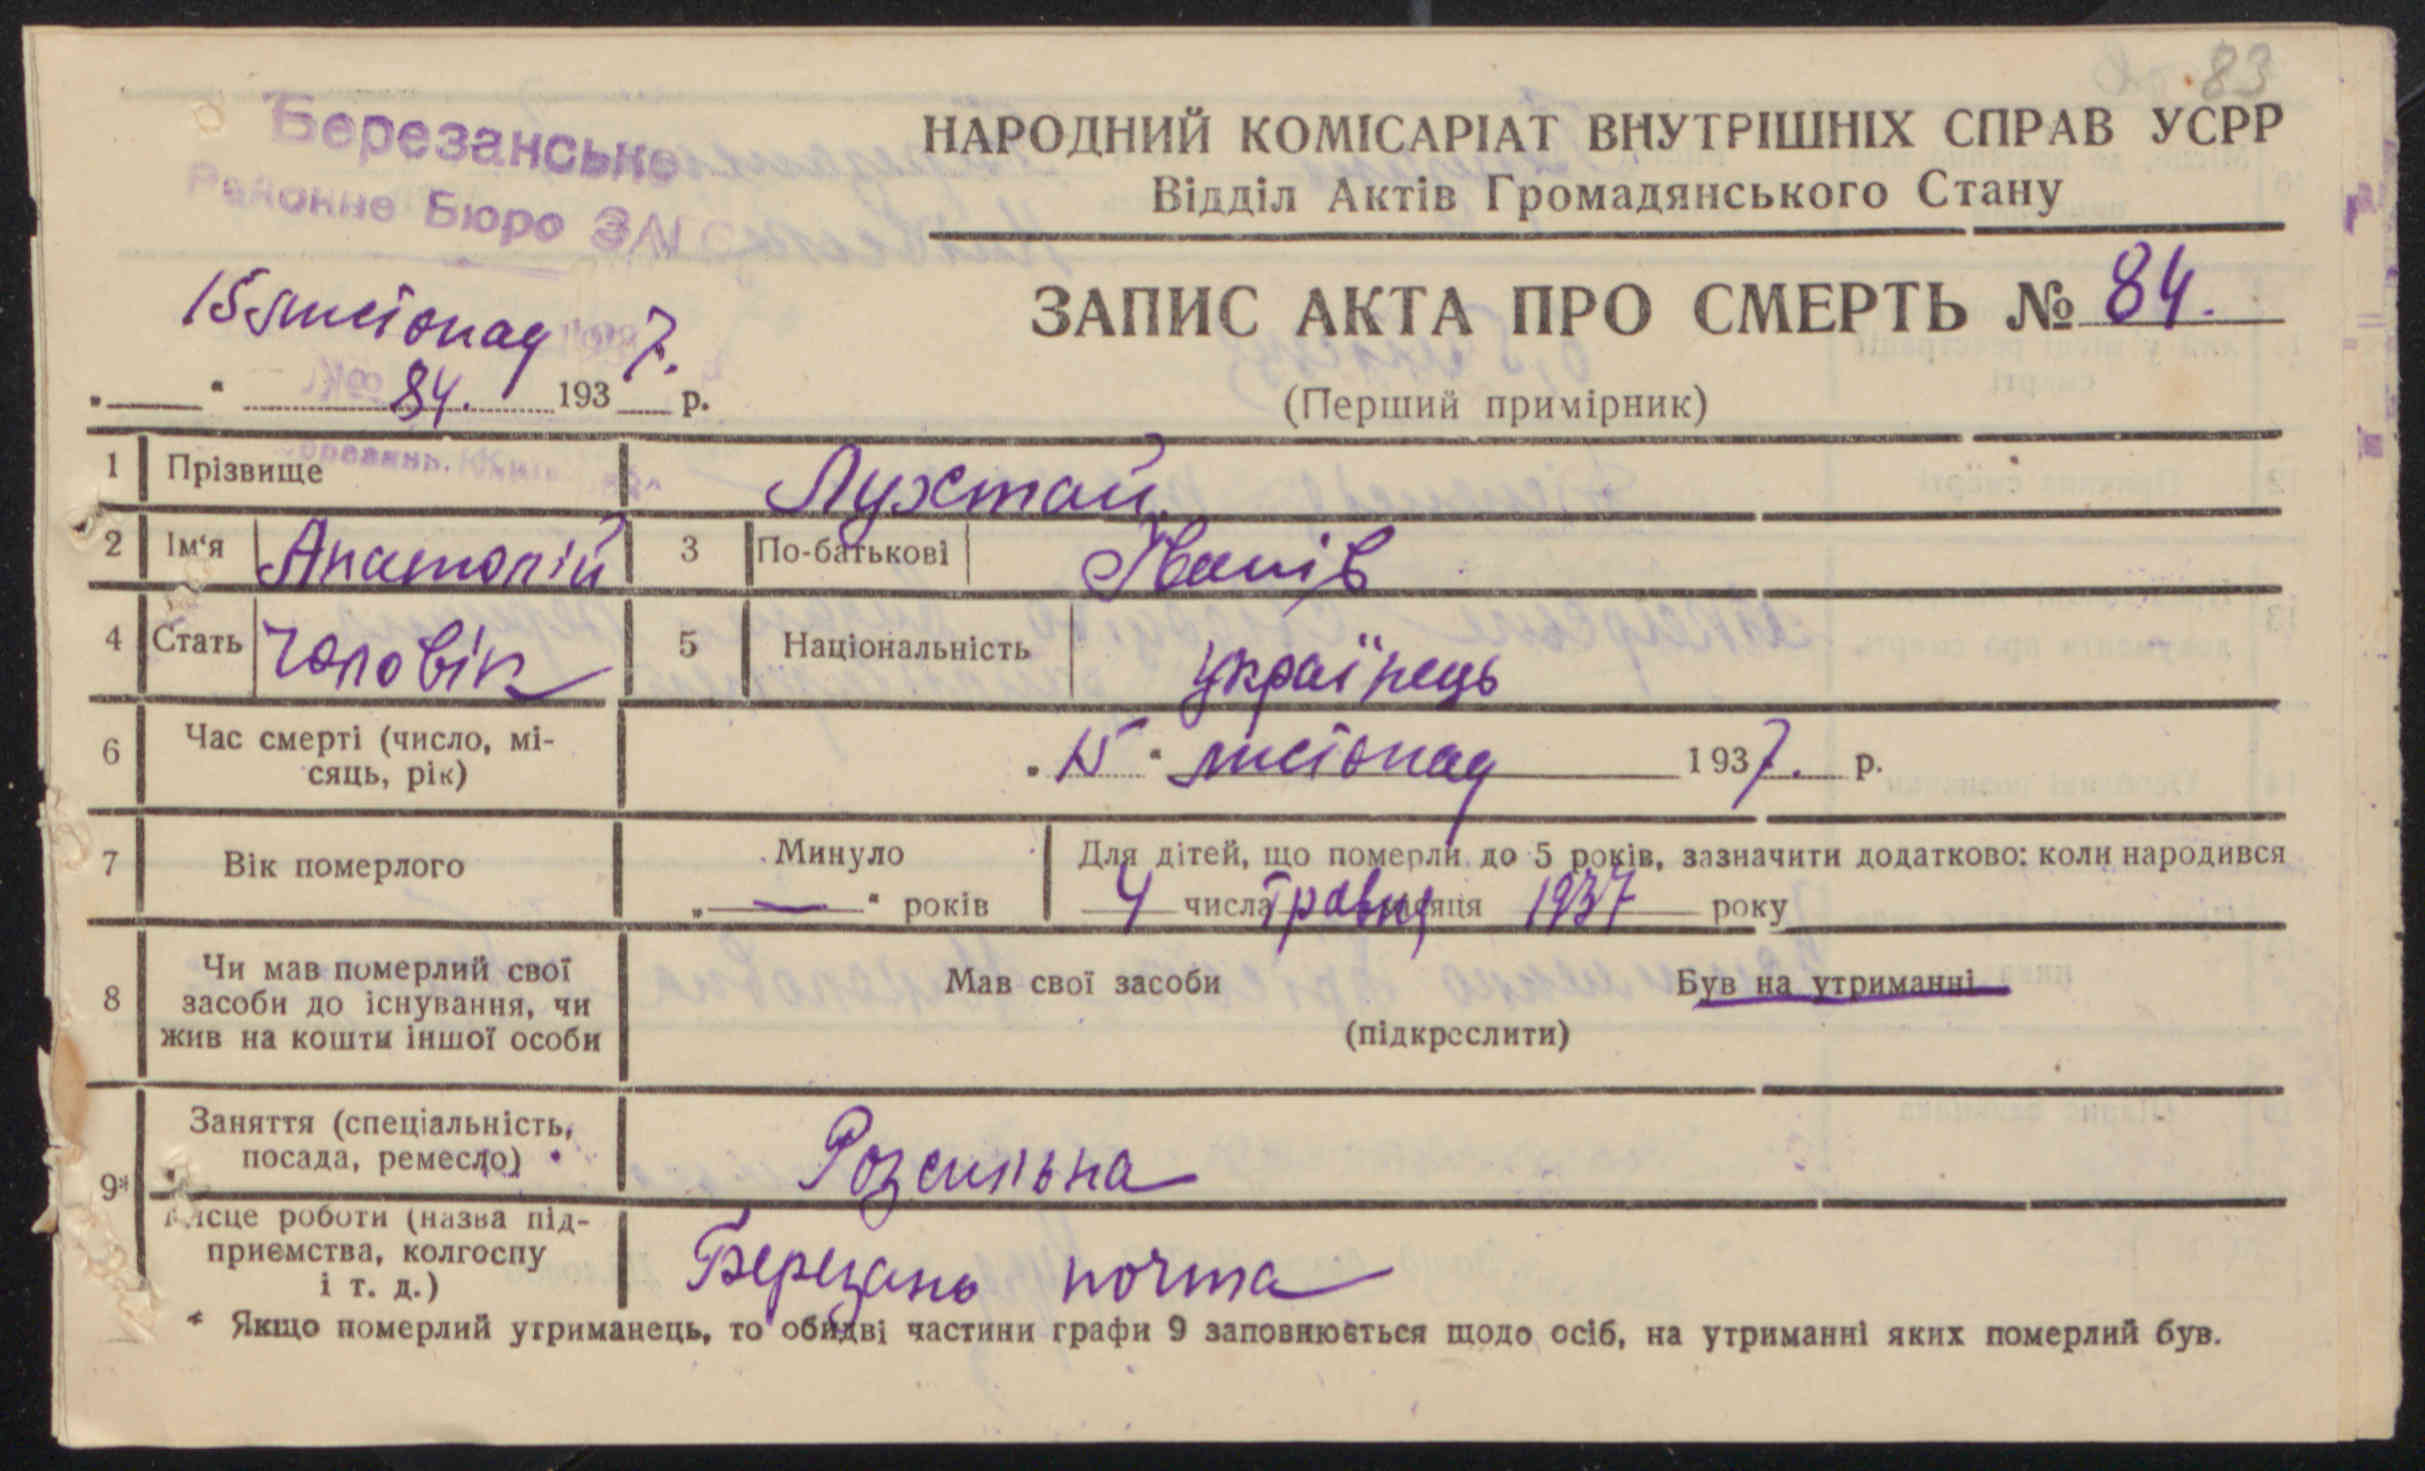 83
Березанське
Районне Бюро ЗАГС
НАРОДНИЙ КОМІСАРІАТ ВНУТРІШНІХ СПРАВ УСРР
Відділ Актів Громадянського Стану
ЗАПИС АКТА ПРО СМЕРТЬ № 84.
(Перший примірник)
15 листопад 7.
„ “ 84. 193 р.
1 Прізвище Лухтай
2 Ім'я Анатолій 3 По-батькові Іванів
4 Стать Чоловік 5 Національність українець
6 Час смерті (число, мі-
сяць, рік)
„15“ листопад 1937. р.
7 Вік померлого
Минуло
„—“ років
Для дітей, що померли до 5 років, зазначити додатково: коли народився
4 числа травня місяця 1937 року
8 Чи мав померлий свої
засоби до існування, чи
жив на кошти іншої особи
Мав свої засоби Був на утриманні
(підкреслити)
9* Заняття (спеціальність,
посада, ремесло)
Розсильна
Місце роботи (назва під-
приємства, колгоспу
і т. д.)
Березань почта
* Якщо померлий утриманець, то обидві частини графи 9 заповнюється щодо осіб, на утриманні яких померлий був.